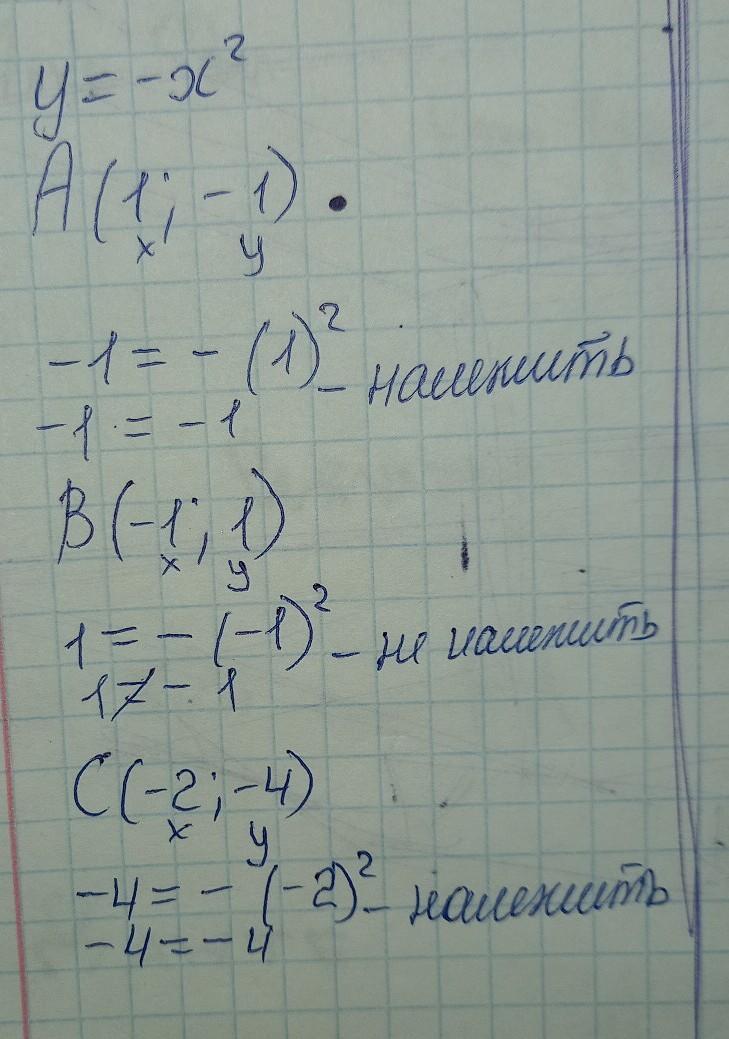 y = -x²
A (1; -1)
x y
-1 = - (1)² - належить
-1 = -1
B (-1; 1)
x y
1 = - (-1)² - не належить
1 ≠ - 1
C (-2; -4)
x y
-4 = - (-2)² - належить
-4 = -4